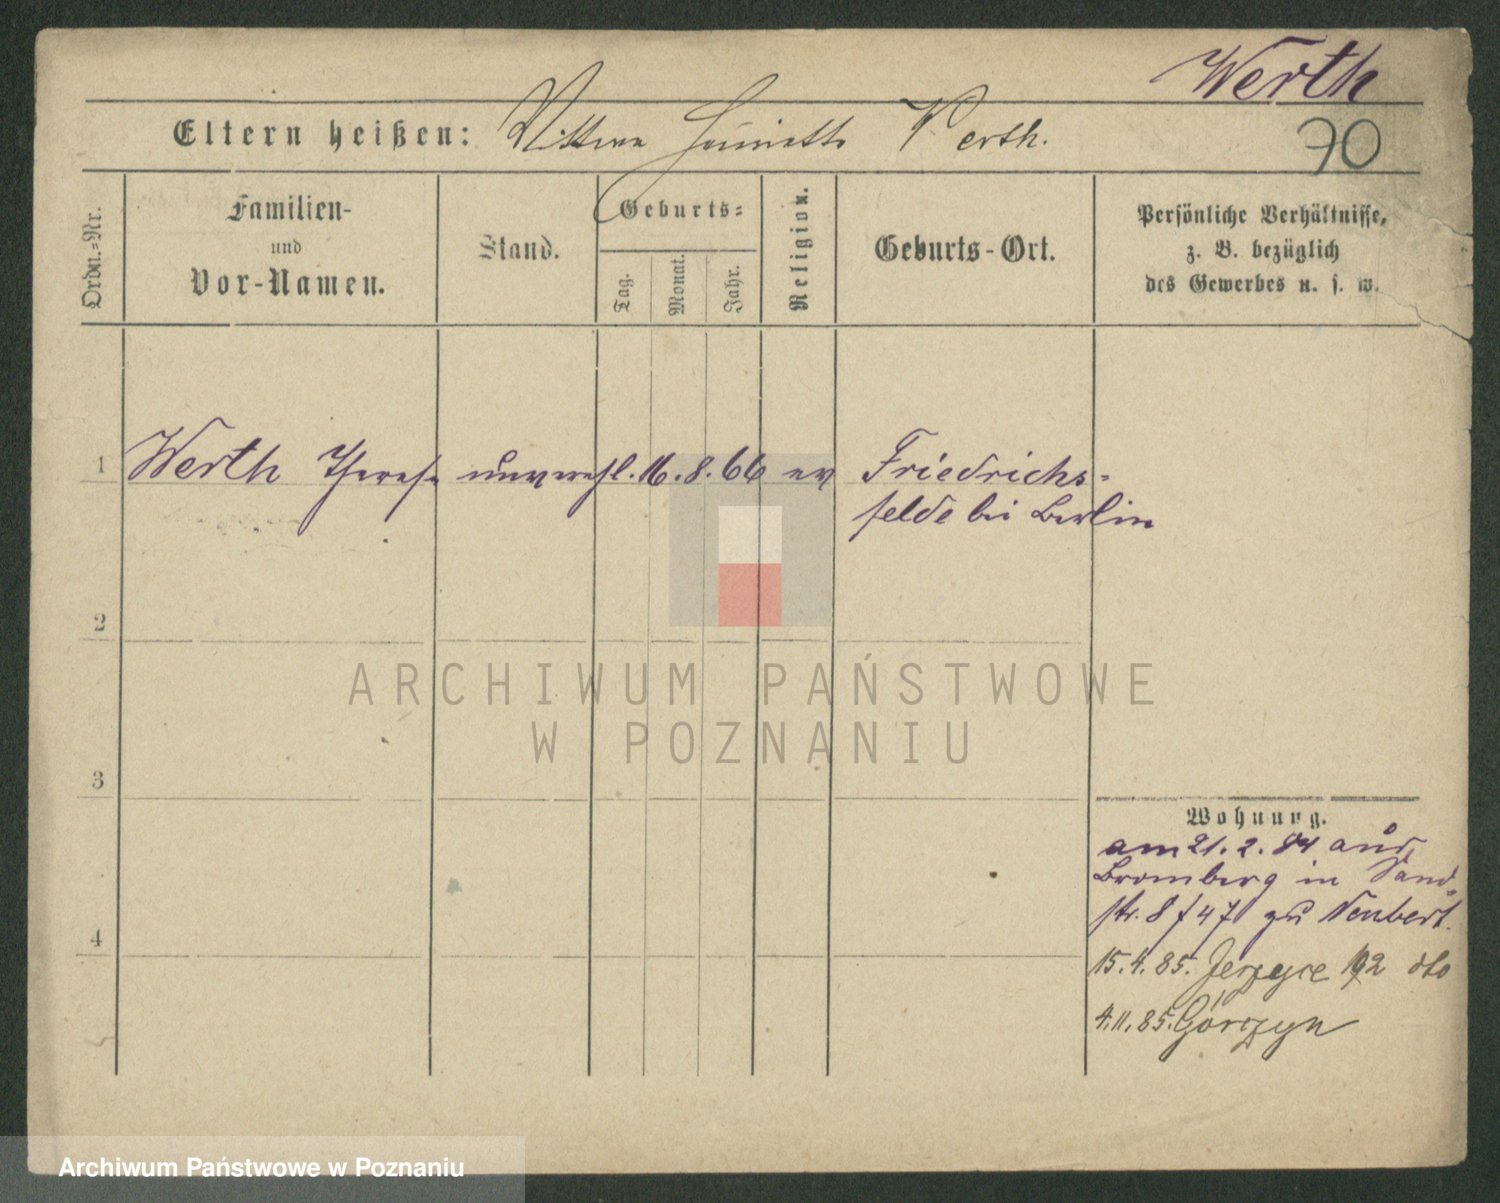 Werth
Eltern heißen: Wittwe Henriette Werth.
70
Ordn.-Nr.
Familien-
und
Vor-Namen.
Stand.
Geburts-
Tag.
Monat.
Jahr.
Religion.
Geburts-Ort.
Persönliche Verhältnisse,
z. B. bezüglich
des Gewerbes u. s. w.
1 Werth Therese unverehl. 16. 8. 66 ev Friedrichs-
felde bei Berlin
2
3
4
ARCHIWUM PAŃSTWOWE
W POZNANIU
Wohnung.
am 21. 2. 84 aus
Bromberg in Sand-
str. 8 / 47 zu Neubert.
15. 4. 85. Jerzyce 192 dto
4. 11. 85. Górczyn
Archiwum Państwowe w Poznaniu